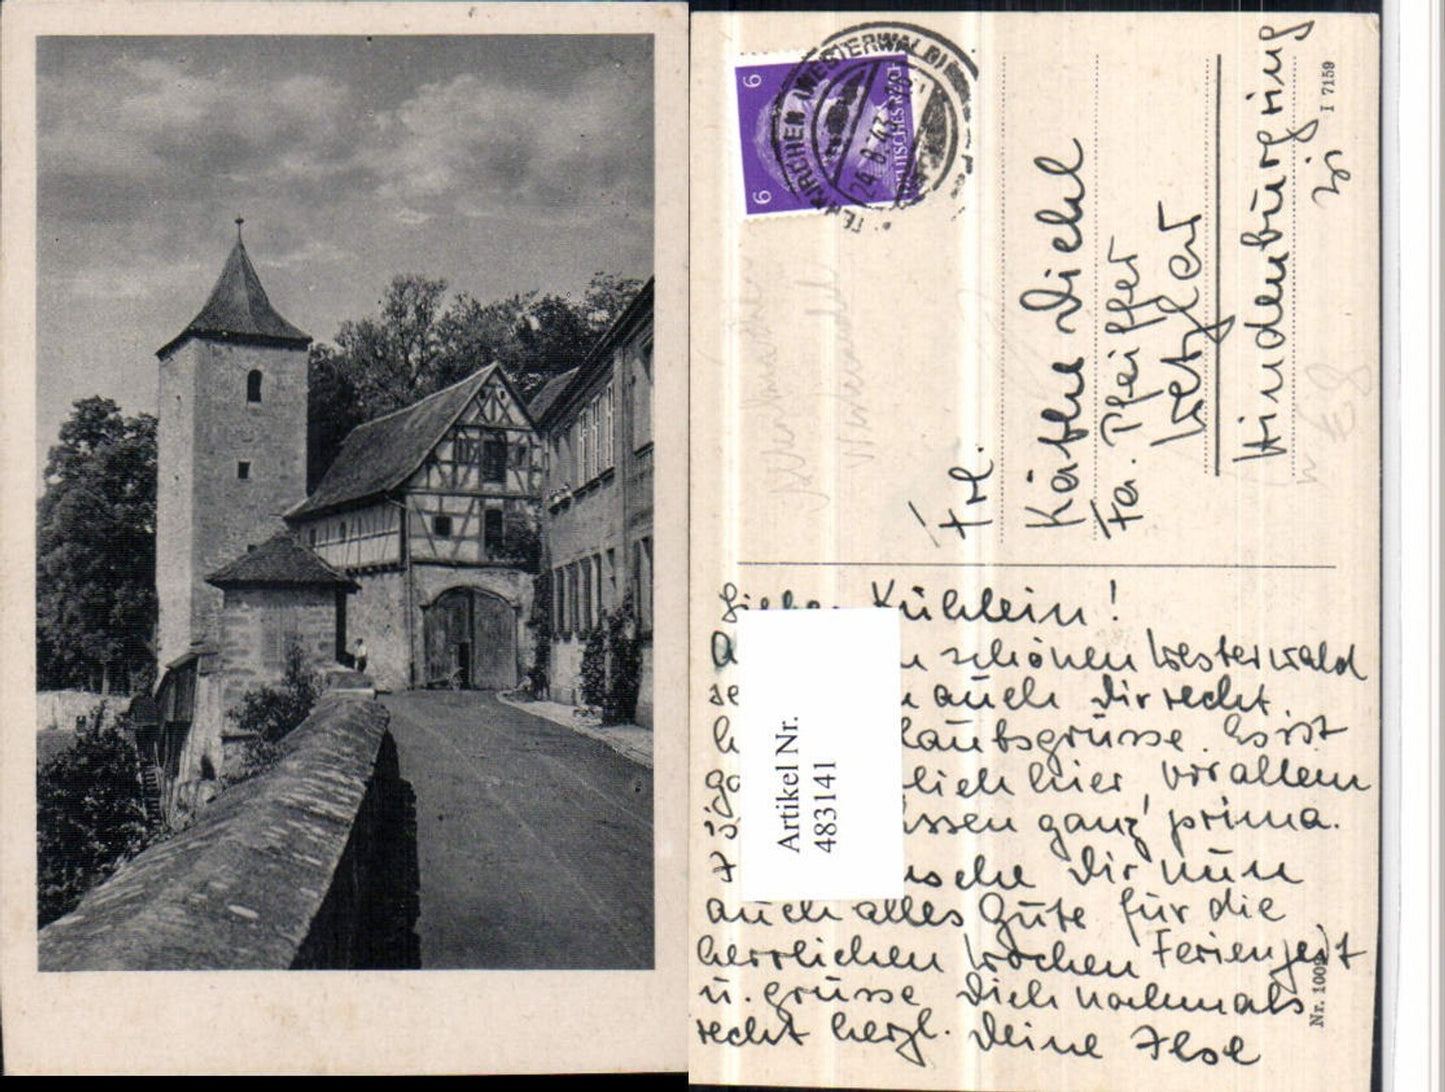 6
6
DEUTSCHES REICH
(WESTERWALD)
24.8.43
Frl.
Käthe Diehl
Fa. Pfeiffer
Wetzlar
Hindenburgring
I 7159
Artikel Nr.
483141
Kühlein!
schönen Westerwald
auch Dir recht
laubsgrüsse. Es ist
lich hier, vor allem
ssen ganz prima.
sche Dir nun
auch alles Gute für die
herrlichen Wochen Ferienzeit
u. grüsse Dich nochmals
recht herzl. Deine Ilse